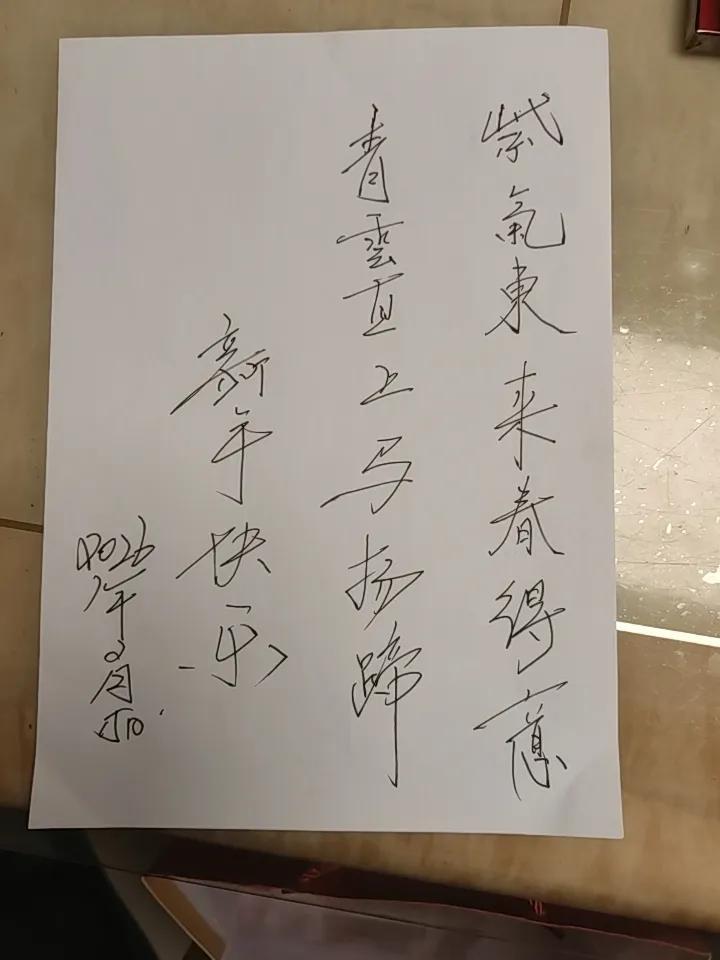 紫氣東来春得意
青雲直上马扬蹄
新年快乐
2026年2月